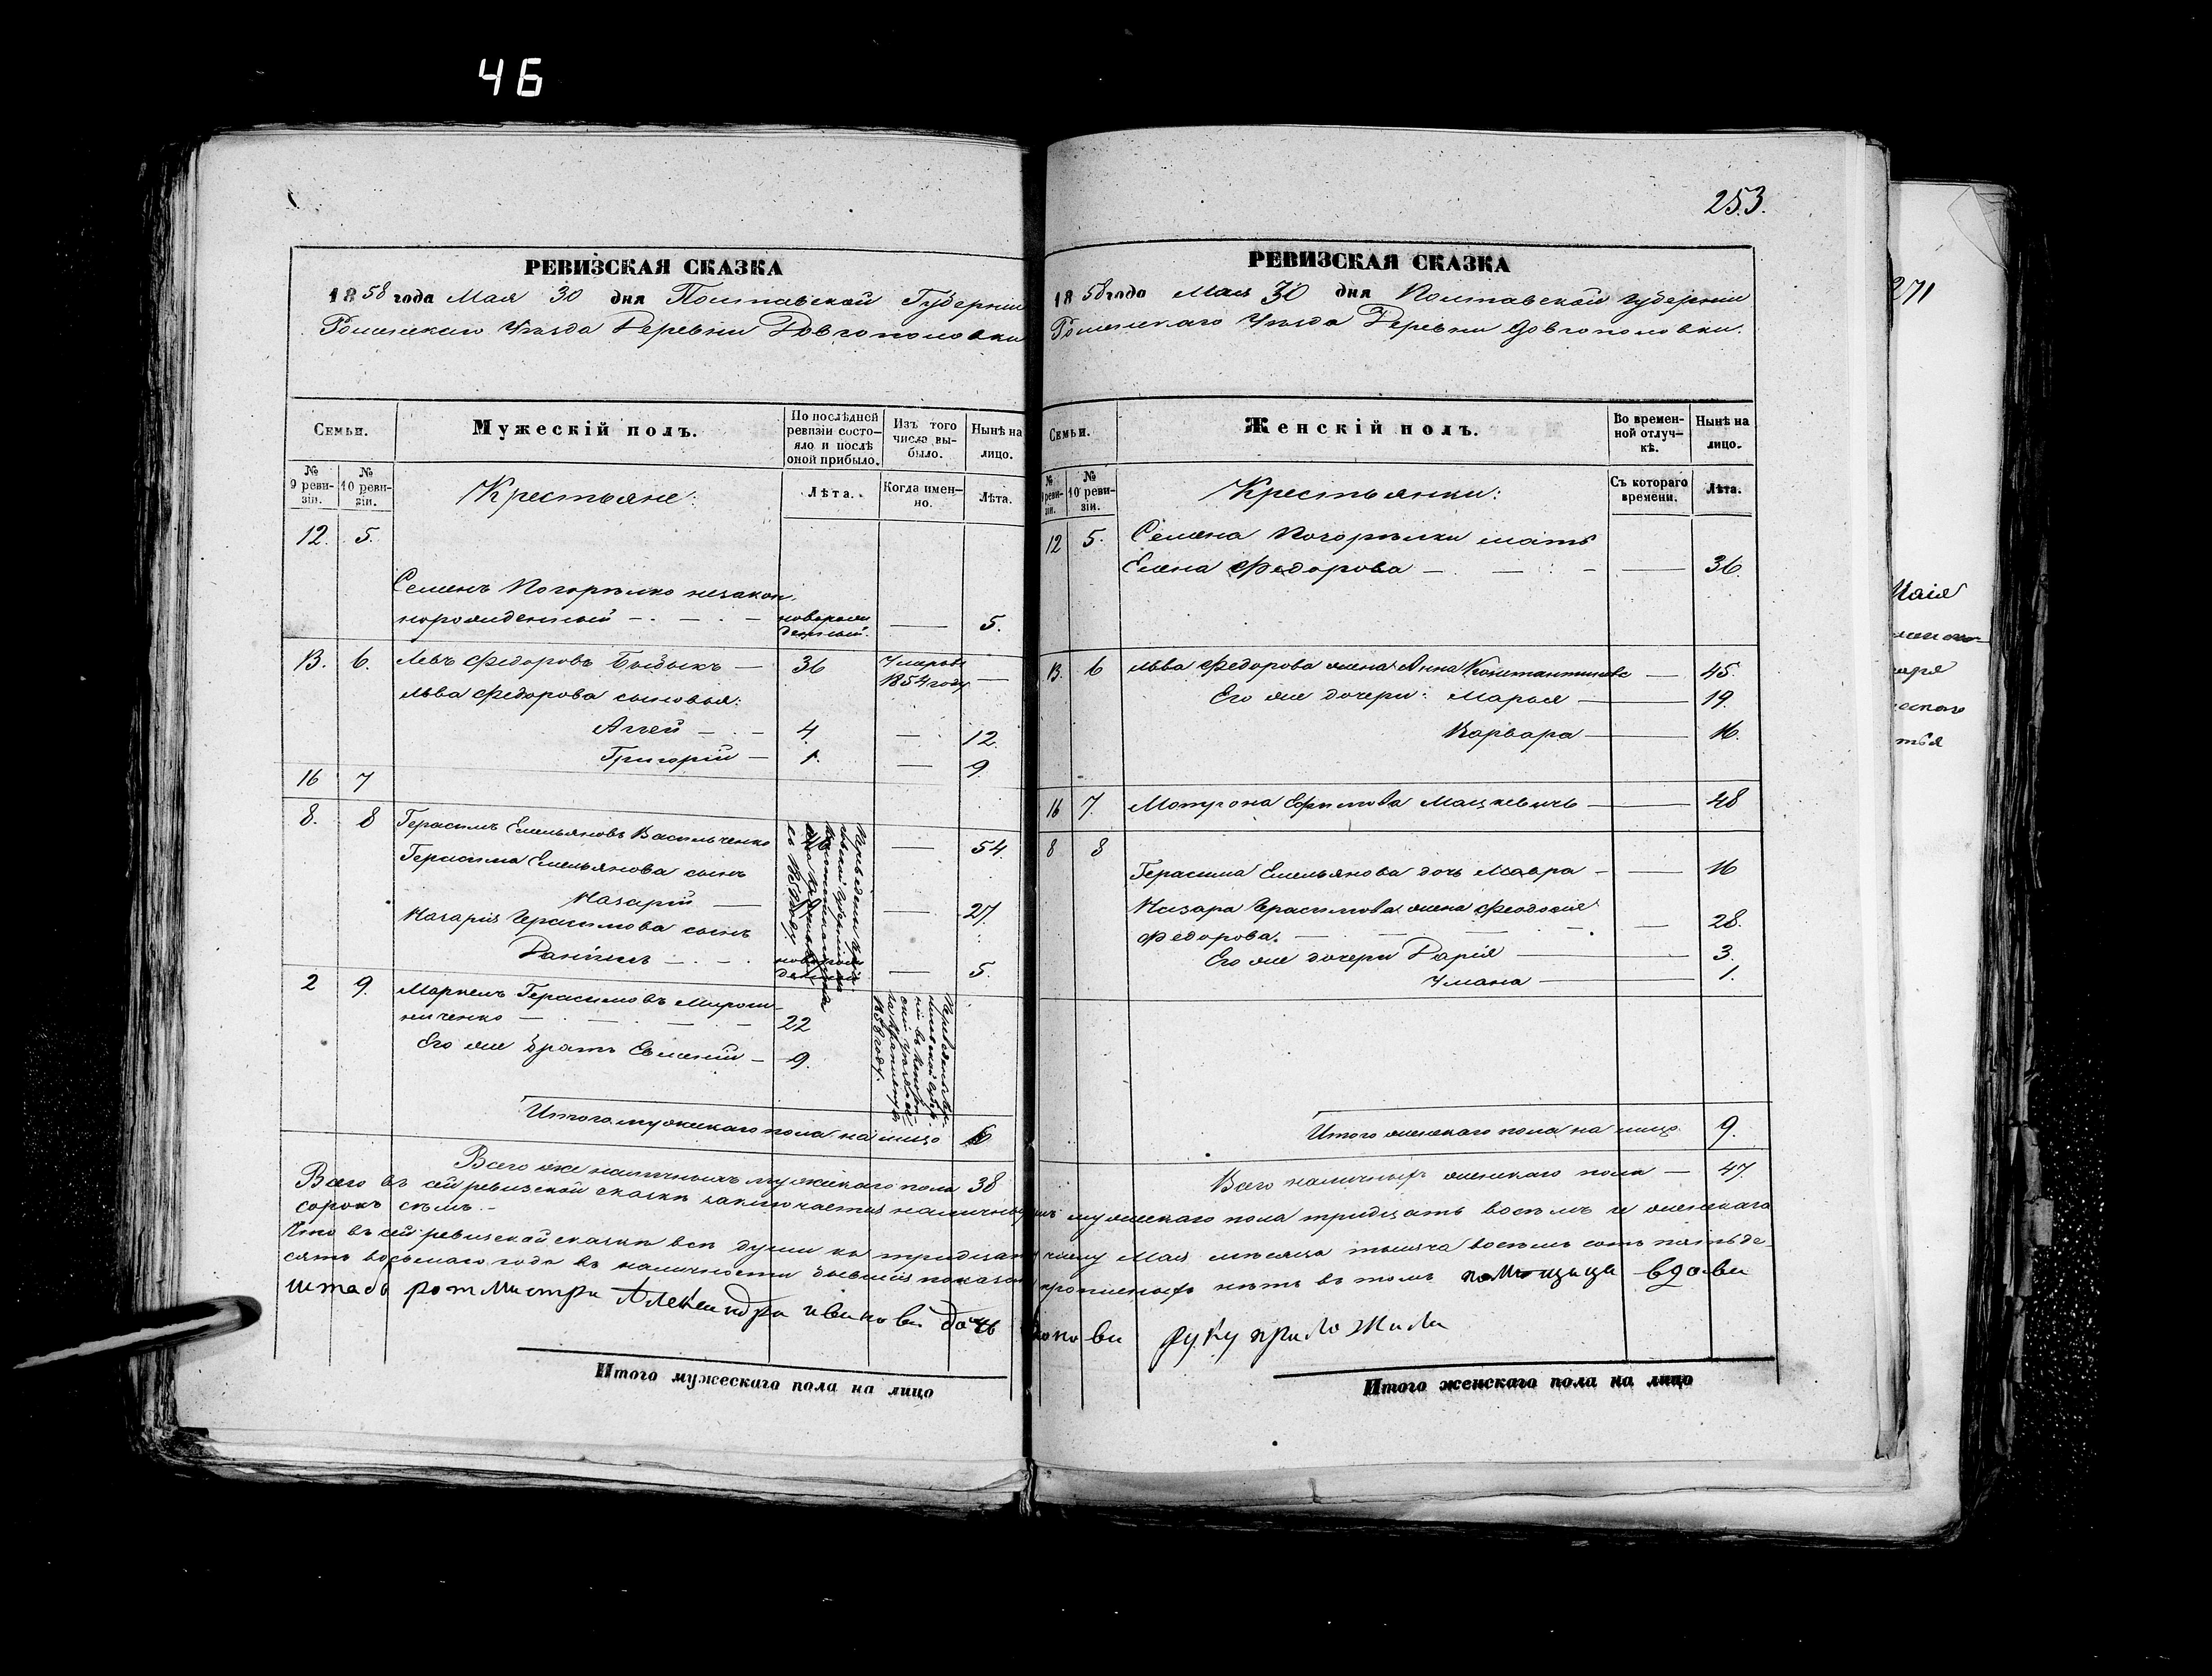 46
РЕВИЗСКАЯ СКАЗКА
1858 года Мая 30 дня Полтавской Губерніи
Роменскаго Уѣзда Деревни Довгополовки
Семьи.
Мужескій полъ.
По послѣдней ревизіи состояло и послѣ оной прибыло.
Изъ того числа выбыло.
Нынѣ на лицо.
№ 9 ревизіи.
№ 10 ревизіи.
Крестьяне:
Лѣта.
Когда именно.
Лѣта.
12. 5.
Семенъ Погорѣлко незакон-
норожденный — новорожденный. — 5.
13. 6. Левъ Федоровъ — 36 Умеръ въ 1854 году —
Льва Федорова сыновья:
Аггей — 4. — 12.
Григорій — 1. — 9.
16 7
8. 8 Герасимъ Емельяновъ Васильченко — 54.
Герасима Емельянова сынъ
Назарій — — 27.
Назарія Герасимова сынъ
Даніилъ — новорожденный — 5.
2 9. Маркелъ Герасимовъ Мирош-
ниченко — 22
Его же братъ Евменій — 9.
Итого мужескаго пола на лицо 6
Всего же наличныхъ мужескаго пола 38
253.
РЕВИЗСКАЯ СКАЗКА
1858 года Мая 30 дня Полтавской Губерніи
Роменскаго Уѣзда Деревни Довгополовки.
Семьи.
Женскій полъ.
Во временной отлучкѣ.
Нынѣ на лицо.
№ 9 ревизіи.
№ 10 ревизіи.
Крестьянки:
Съ котораго времени.
Лѣта.
12 5. Семена Погорѣлки мать
Елена Федорова — — 36.
13. 6 Льва Федорова жена Анна Константинова — 45.
Его же дочери: Марья — 19.
Варвара — 16.
16 7. Мотрона Ефимова Мацкевичъ — 48
8 8
Герасима Емельянова дочь Мавра — 16
Назара Герасимова жена Феодосія
Федорова. — — 28.
Его же дочери Дарія — 3.
Уляна — 1.
Итого женскаго пола на лицо 9.
Всего наличныхъ женскаго пола — 47.
Всего въ сей ревизской сказкѣ заключается наличныхъ мужескаго пола тридцать восемъ и женскаго
сорокъ семь. —
Что въ сей ревизской сказкѣ всѣ души къ тридцатому числу Мая мѣсяца тысяча восемь сотъ пятьде-
сятъ восьмаго года въ наличности бывшія показаны и прописныхъ нѣтъ въ томъ помѣщица вдова
штабъ ротмистра Александра Иванова дочь руку приложила
Итого мужескаго пола на лицо
Итого женскаго пола на лицо
271
Маія